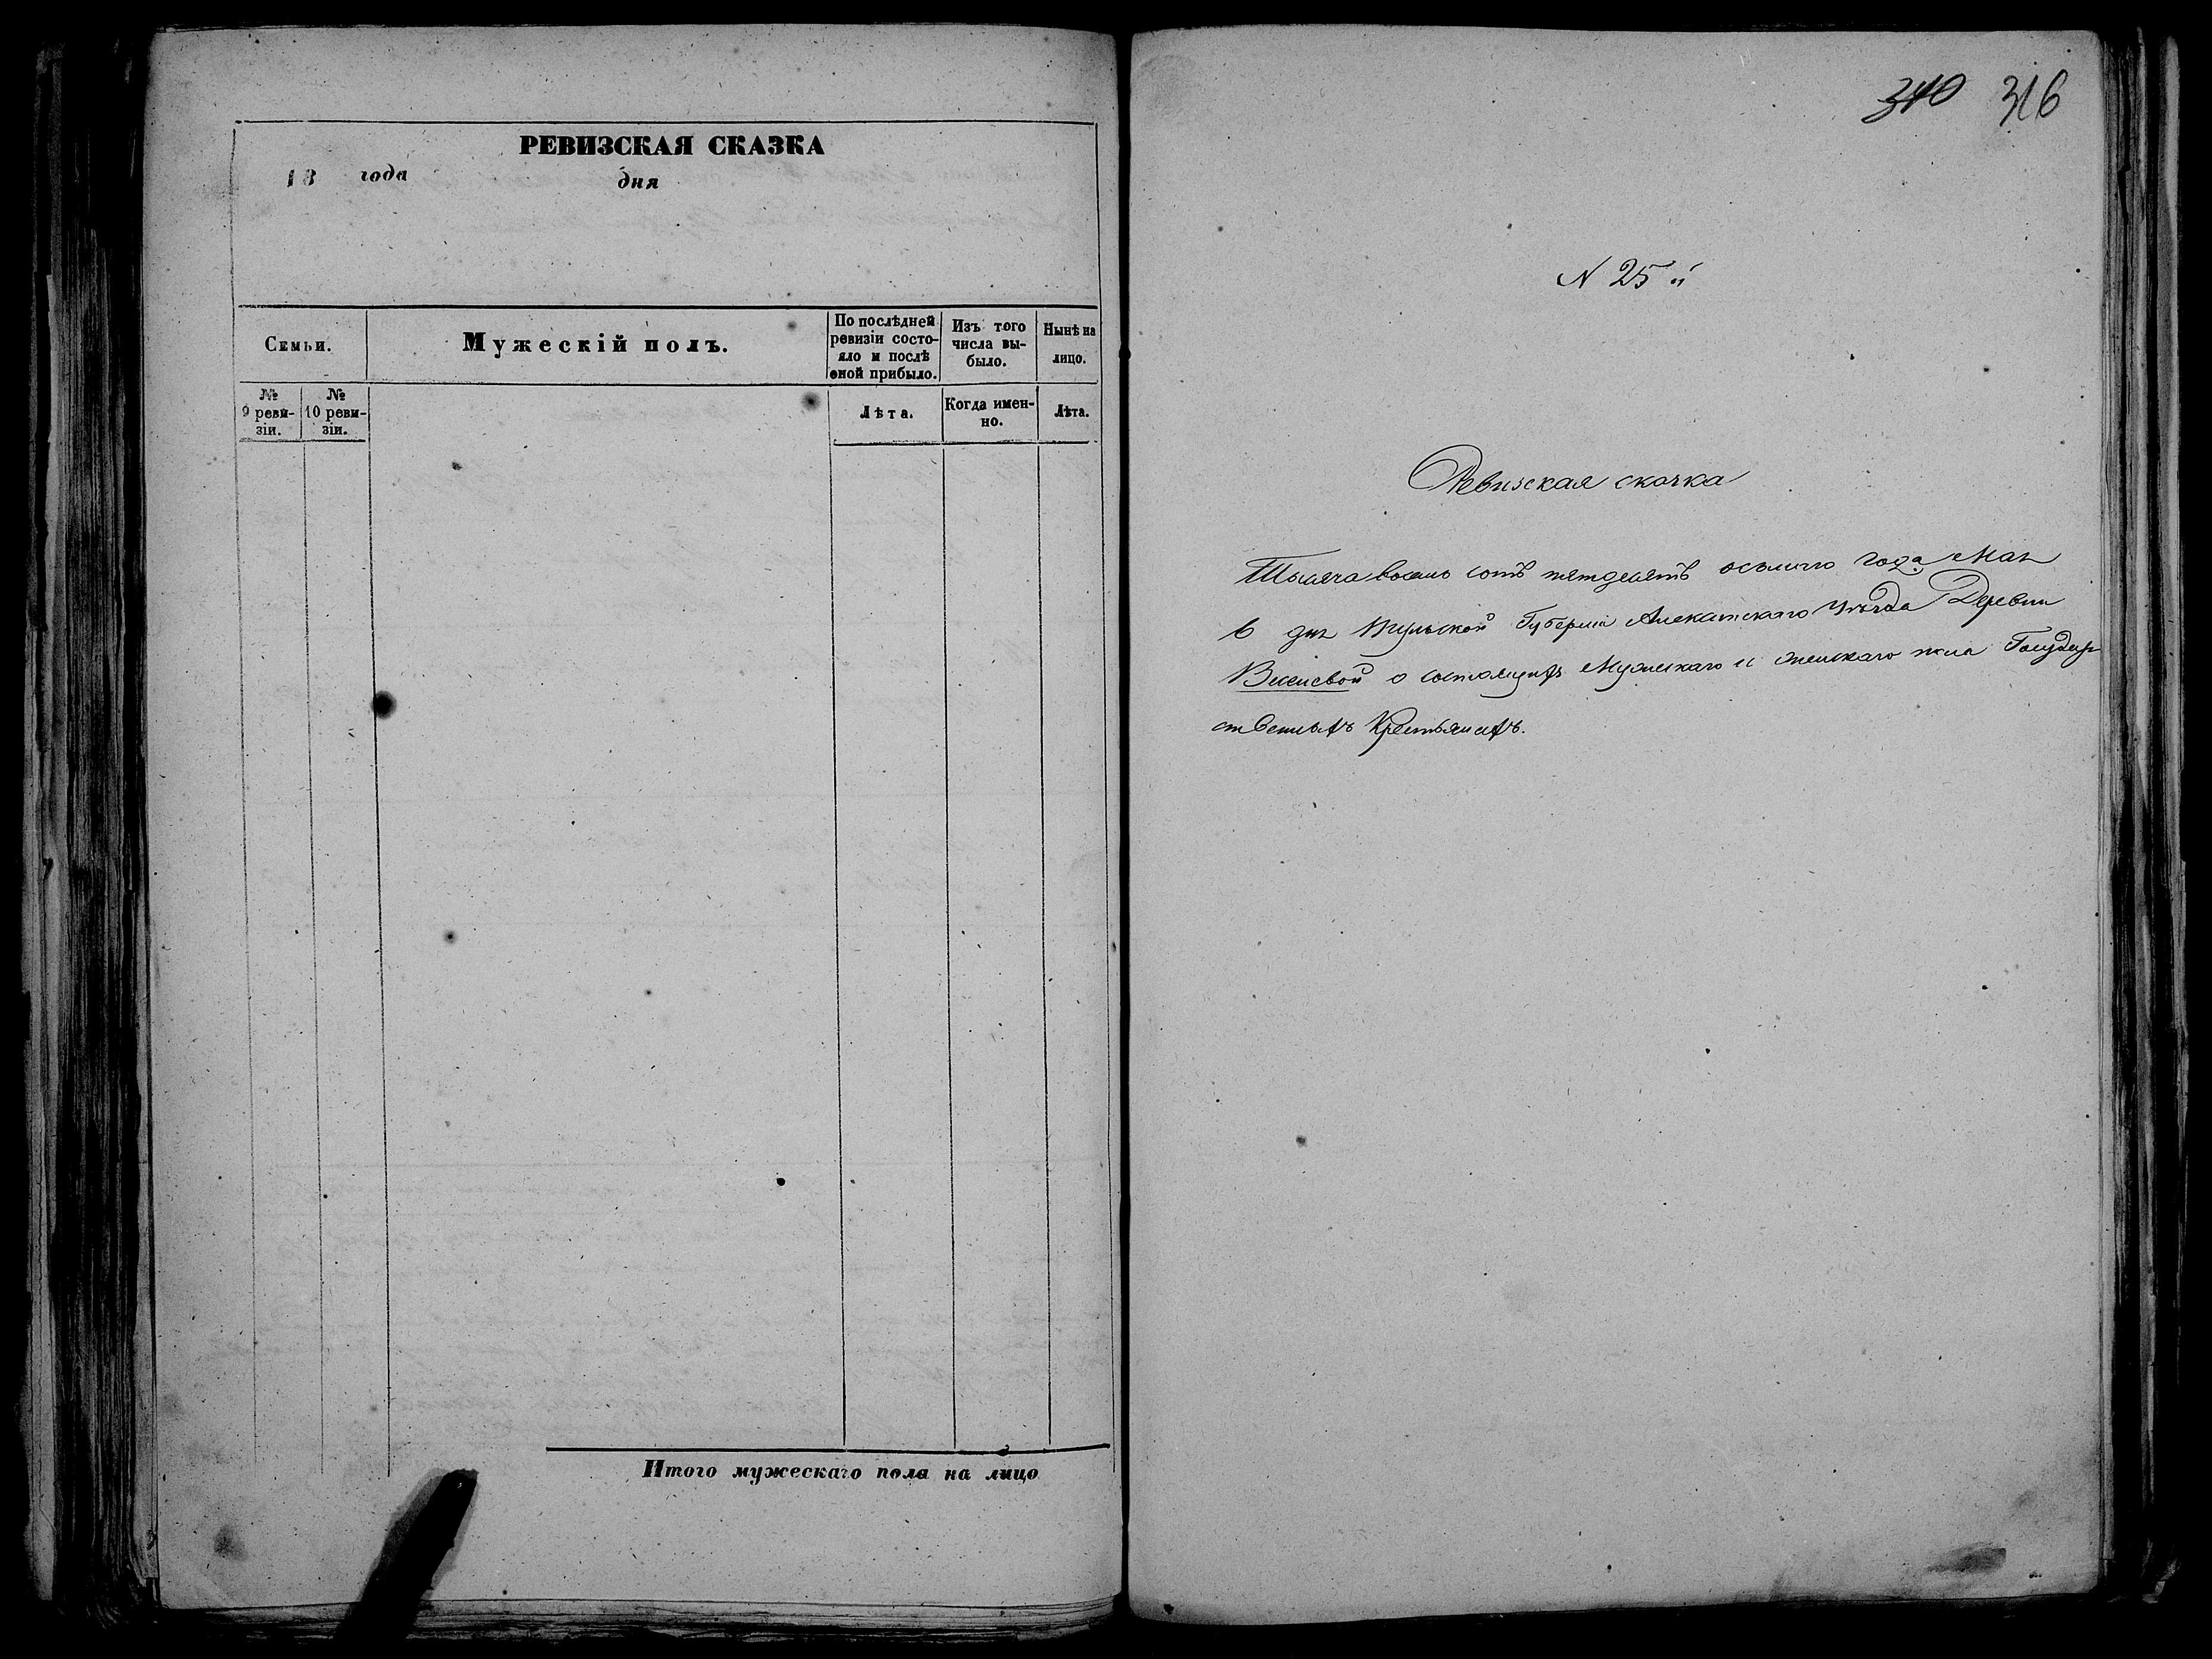 РЕВИЗСКАЯ СКАЗКА
18 года дня
Семьи.
Мужескій полъ.
По послѣдней ревизіи состояло и послѣ оной прибыло.
Изъ того числа выбыло.
Нынѣ на лицо.
№ 9 ревизіи.
№ 10 ревизіи.
Лѣта.
Когда именно.
Лѣта.
Итого мужескаго пола на лицо
340 316
N 25 й
Ревизская сказка
Тысяча восемь сотъ пятдесятъ осьмаго года Мая
6 дня Тульской Губерніи Алексинскаго Уѣзда Деревни
о состоящихъ Мужескаго и женскаго пола Государ
ственныхъ Крестьянахъ.